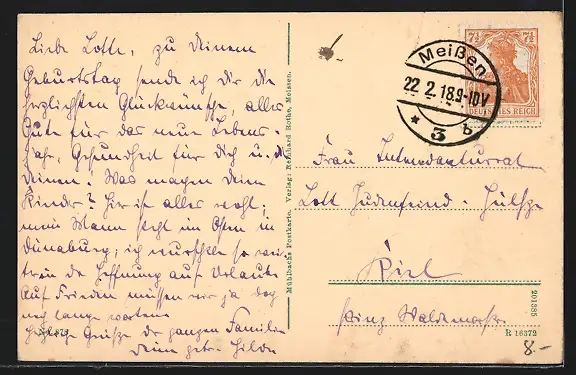 Liebe Lotte, zu Deinem
Geburtstag sende ich Dir die
herzlichsten Glückwünsche, alles
Gute für das neue Lebens-
jahr, Gesundheit für Dich u. die
Deinen. Was machen Deine
Kinder? Hier ist alles wohl;
mein Mann in
Dünaburg; ich so
die Hoffnung auf Urlaub.
Auf Frieden müssen wir ja doch
noch lange warten.
Herzliche Grüße der ganzen Familie
Deine getr. Hilde
Mühlbachs Postkarte. Verlag: Reinhard Rothe, Meissen.
Meißen
22.2.18.9-10V
* 3 b
7½ 7½
DEUTSCHES REICH
Frau Intendanturrat
Lott
Kiel
Prinz
201888
R 16372
8.-